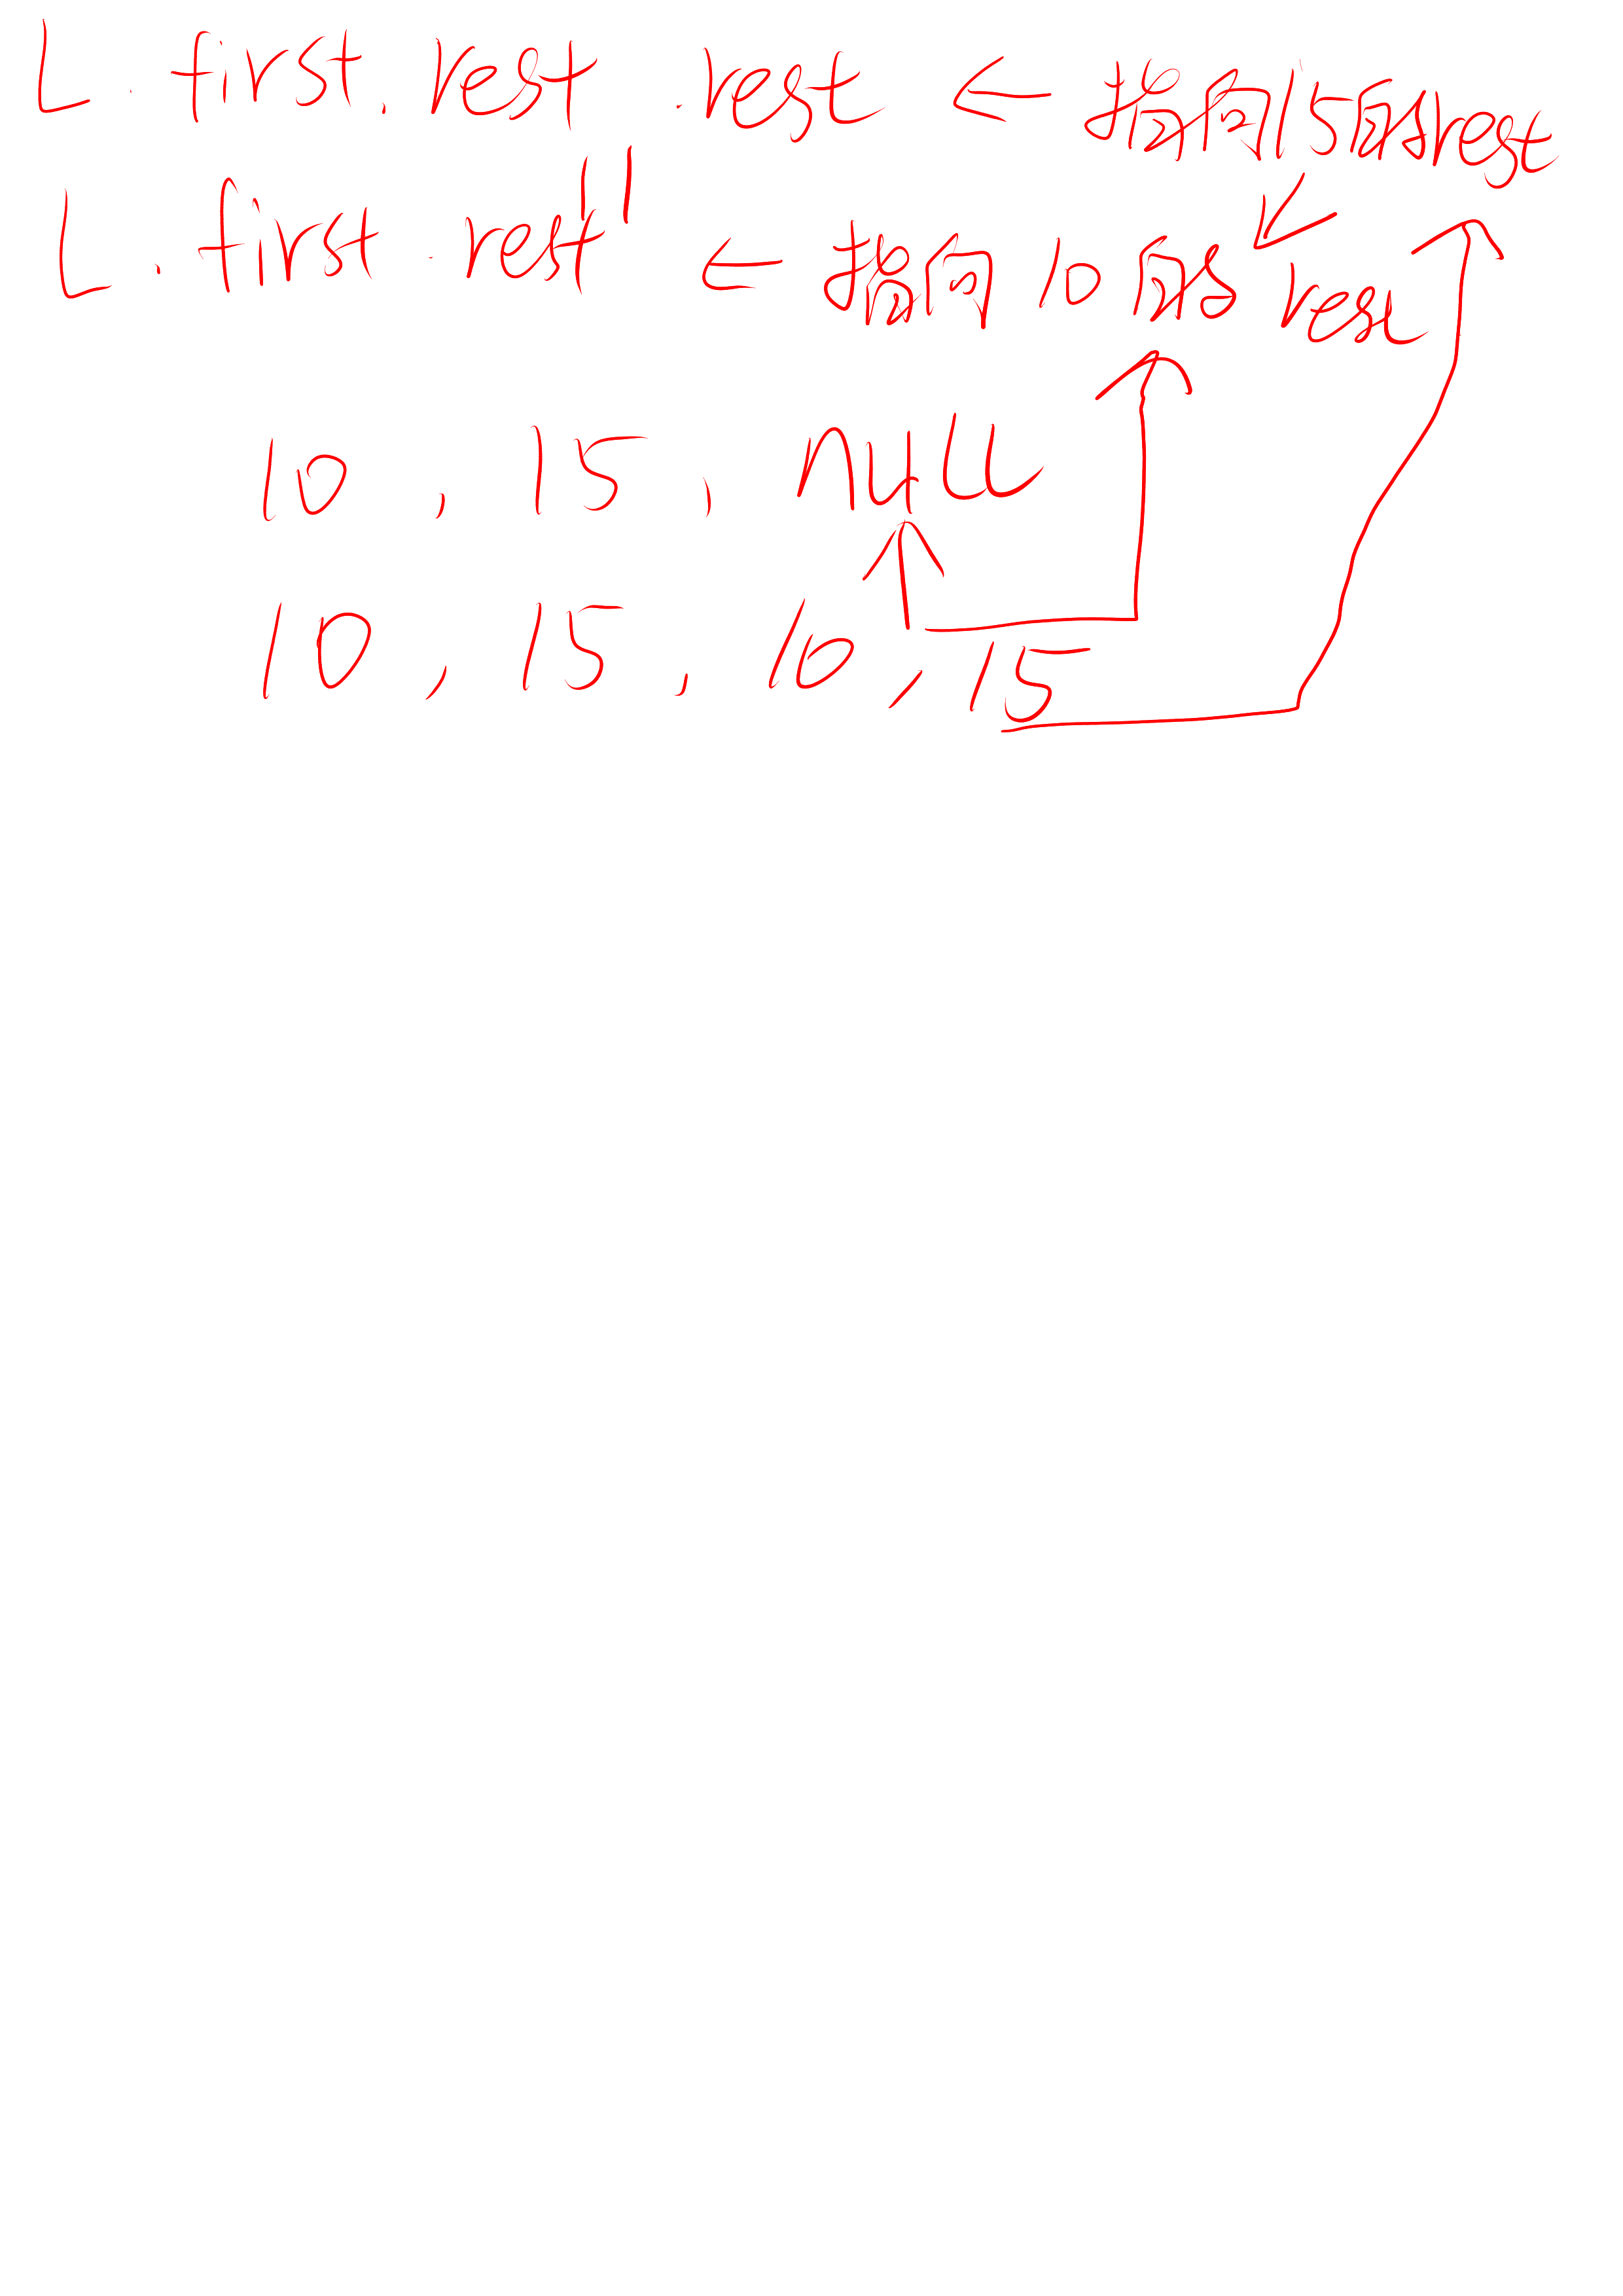 L.first.rest.rest ← 指向15后面的rest
L.first.rest ← 指向10后的rest
10, 15, null
10, 15, 10, 15